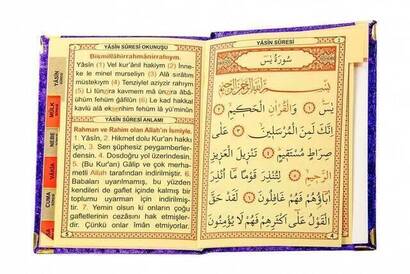 YÂSÎN SÛRESİ OKUNUŞU
Bismillâhirrahmânirrahîym.
Yâsîn (1) Vel kur'ânil hakîym (2) İnne-
ke le minel murseliyn (3) Alâ sırâtım
müstekıym (4) Tenziylel aziyzirrahıym
(5) Li tünzira kavmem mâ ünzira âbâ-
ühüm fehüm ğâfilûn (6) Le kad hakkal
kavlü alâ ekserihim fehüm lâ yü'minûn
YÂSÎN SÛRESİ ANLAMI
Rahman ve Rahîm olan Allah'ın İsmiyle.
1. Yâsîn, 2. Hikmet dolu Kur'an hakkı
için, 3. Sen şüphesiz peygamberler-
densin. 4. Dosdoğru yol üzerindesin.
5. (Bu Kur'an) Gâlip ve çok merha-
metli Allah tarafından indirilmiştir. 6.
Babaları uyarılmamış, bu yüzden
kendileri de gaflet içinde kalmış bir
toplumu uyarman için indirilmiş-
tir. 7. Yemin olsun ki onların çoğu
gafletlerinin cezasını hak etmişler-
dir. Çünkü onlar îmân etmiyorlar.
YÂSÎN
MÜLK
NEBE
VÂKIA
CUMA
YÂSÎN SÛRESİ
سُورَةُ يٰسٓ
بِسْمِ اللّٰهِ الرَّحْمٰنِ الرَّحِيمِ
يٰسٓ ﴿١﴾ وَالْقُرْاٰنِ الْحَكِيمِ ﴿٢﴾
اِنَّكَ لَمِنَ الْمُرْسَلِينَ ﴿٣﴾ عَلٰى
صِرَاطٍ مُسْتَقِيمٍ ﴿٤﴾ تَنْزِيلَ الْعَزِيزِ
الرَّحِيمِ ﴿٥﴾ لِتُنْذِرَ قَوْمًا مَٓا اُنْذِرَ
اٰبَٓاؤُهُمْ فَهُمْ غَافِلُونَ ﴿٦﴾ لَقَدْ حَقَّ
الْقَوْلُ عَلٰٓى اَكْثَرِهِمْ فَهُمْ لَا يُؤْمِنُونَ